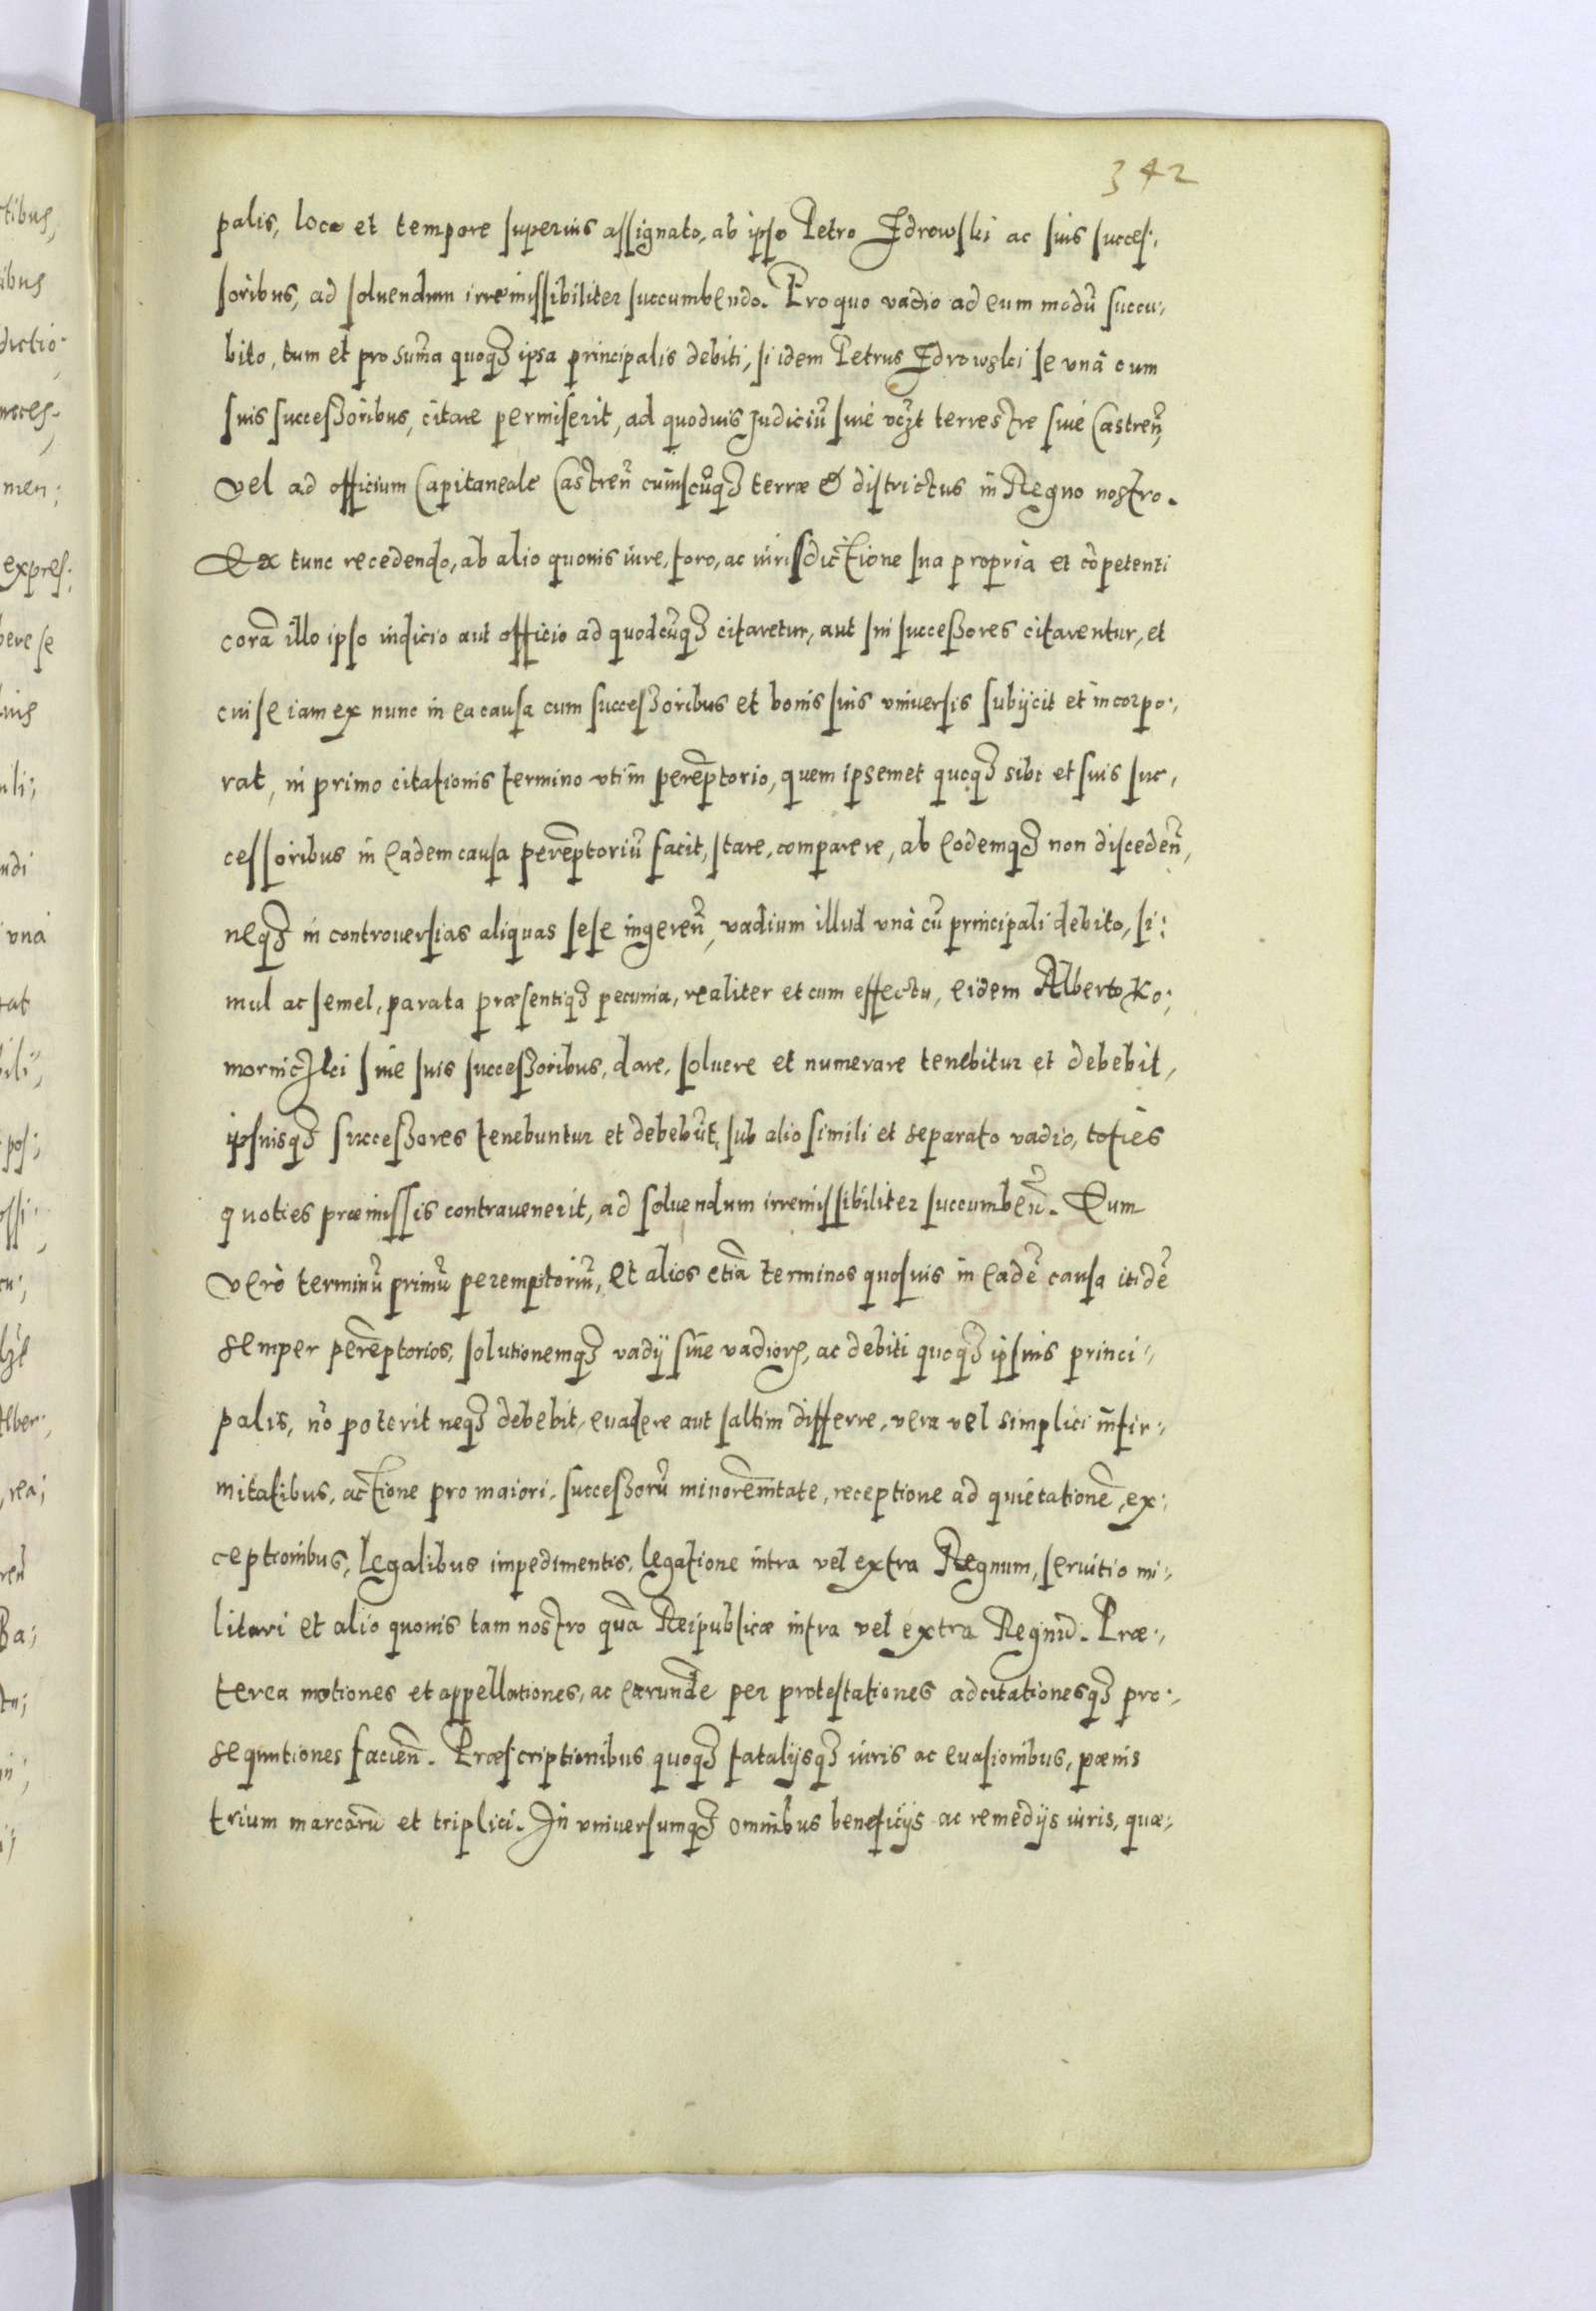 342
palis, loco et tempore superius assignato, ab ipso Petro Zdrowski ac suis succes:,
soribus, ad soluendum irremissibiliter succumbendo. Pro quo vadio ad eum modū succu:,
bito, tum et pro sum̄a quoqȝ ipsa principalis debiti, si idem Petrus Zdrowski se unâ cum
suis successoribus, citare permiserit, ad quoduis Judiciū siue vczt terrestre siue Castren̄,
vel ad officium Capitaneale Castren̄ cuiuscūqȝ terræ & districtus in Regno nostro.
Ex tunc recedendo, ab alio quouis iure, foro, ac iurisdictione sua propria et cōpetenti
corā illo ipso iudicio aut officio ad quodcūqȝ citaretur, aut sui successores citarentur, et
cui se iam ex nunc in ea causa cum successoribus et bonis suis vniuersis subijcit et incorpo:,
rat, in primo citationis termino vti in perēptorio, quem ipsemet quoqȝ sibi et suis suc,
cessoribus in eadem causa perēptoriū facit, stare, comparere, ab eodemqȝ non disceden̄,
neqȝ in controuersias aliquas sese ingeren̄, vadium illud vnâ cū principali debito, si:
mul ac semel, parata præsentiqȝ pecunia, realiter et cum effectu, eidem Alberto Ko:
morniczki siue suis successoribus, dare, soluere et numerare tenebitur et debebit,
ipsiusqȝ successores tenebuntur et debebūt, sub alio simili et separato vadio, toties
quoties præmissis contrauenerit, ad soluendum irremissibiliter succumben̄. Eum
verò terminū primū peremptoriū, et alios etiā terminos quosuis in eadē causa itidē
semper perēptorios, solutionemqȝ vadij siue vadiorȝ, ac debiti quoqȝ ipsius princi:,
palis, nō poterit neqȝ debebit, euadere aut saltim differre, vera vel simplici infir:,
mitatibus, actione pro maiori, successorū minorēnitate, receptione ad quietationē, ex:,
ceptionibus, legalibus impedimentis, legatione intra vel extra Regnum, seruitio mi:,
litari et alio quouis tam nostro quā Reipublicæ intra vel extra Regnū. Præ:,
terea motiones et appellationes, ac earundē per protestationes adcitationesqȝ pro:,
sequutiones facien̄. Præscriptionibus quoqȝ fatalijsqȝ iuris ac euasionibus, pænis
trium marcarū et triplici. In vniuersumqȝ omnibus beneficijs ac remedijs iuris, quæ:,